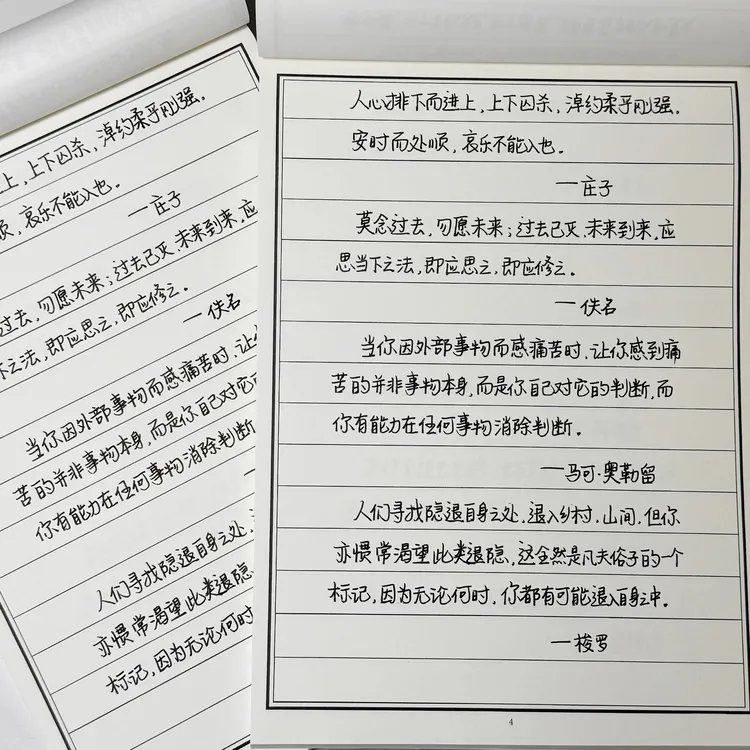 人心排下而进上，上下囚杀，淖约柔乎刚强。
安时而处顺，哀乐不能入也。
一庄子
莫念过去，勿愿未来；过去已灭，未来到来，应
思当下之法，即应思之，即应修之。
一佚名
当你因外部事物而感痛苦时，让你感到痛
苦的并非事物本身，而是你自己对它的判断，而
你有能力在任何事物消除判断。
一马可·奥勒留
人们寻找隐退自身之处，退入乡村，山间，但你
亦惯常渴望此类退隐，这全然是凡夫俗子的一个
标记，因为无论何时，你都有可能退入自身之中。
一梭罗
4
上，上下囚杀，淖约柔乎刚强。
顺，哀乐不能入也。
一庄子
过去，勿愿未来；过去已灭，未来到来，应
下之法，即应思之，即应修之。
一佚名
当你因外部事物而感痛苦时，让
苦的并非事物本身，而是你自己对它
你有能力在任何事物消除判断
人们寻找隐退自身之处，
亦惯常渴望此类退隐
标记，因为无论何时